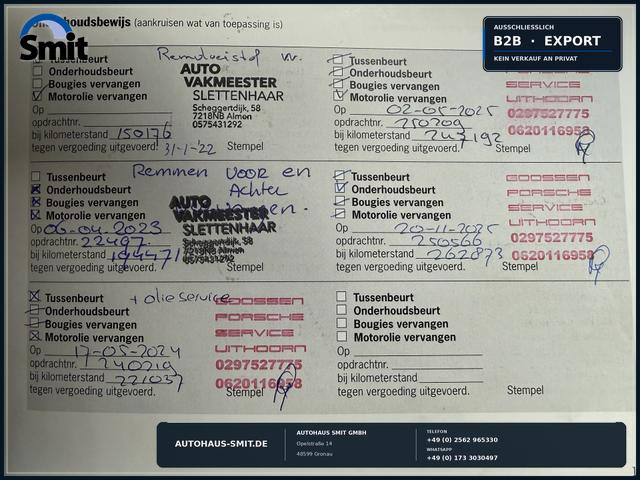 Smit
houdsbewijs (aankruisen wat van toepassing is)
AUSSCHLIESSLICH
B2B · EXPORT
KEIN VERKAUF AN PRIVAT
Remvloeistof vv.
Tussenbeurt
Onderhoudsbeurt
Bougies vervangen
Motorolie vervangen
Op
opdrachtnr.
bij kilometerstand 150176
tegen vergoeding uitgevoerd. 31-1-'22 Stempel
AUTO
VAKMEESTER
SLETTENHAAR
Scheggerdijk, 58
7218NB Almen
0575431292
Tussenbeurt
Onderhoudsbeurt
Bougies vervangen
Motorolie vervangen
Op 02-05-2025
opdrachtnr. 250209
bij kilometerstand 247192
tegen vergoeding uitgevoerd. Stempel
SERVICE
UITHOORN
0297527775
0620116958
Remmen voor en
Achter
Tussenbeurt
Onderhoudsbeurt
Bougies vervangen
Motorolie vervangen
Op 06-04-2023
opdrachtnr. 22497
bij kilometerstand 194471
tegen vergoeding uitgevoerd. Stempel
AUTO
VAKMEESTER
SLETTENHAAR
Scheggerdijk, 58
7218NB Almen
0575431292
Tussenbeurt
Onderhoudsbeurt
Bougies vervangen
Motorolie vervangen
Op 20-11-2025
opdrachtnr. 250566
bij kilometerstand 262873
tegen vergoeding uitgevoerd. Stempel
GOOSSEN
PORSCHE
SERVICE
UITHOORN
0297527775
0620116958
Tussenbeurt + olieservice
Onderhoudsbeurt
Bougies vervangen
Motorolie vervangen
Op 17-05-2024
opdrachtnr. 240219
bij kilometerstand 221037
tegen vergoeding uitgevoerd. Stempel
GOOSSEN
PORSCHE
SERVICE
UITHOORN
0297527775
0620116958
Tussenbeurt
Onderhoudsbeurt
Bougies vervangen
Motorolie vervangen
Op
opdrachtnr.
bij kilometerstand
tegen vergoeding uitgevoerd. Stempel
AUTOHAUS-SMIT.DE
AUTOHAUS SMIT GMBH
Opelstraße 14
48599 Gronau
TELEFON
+49 (0) 2562 965330
WHATSAPP
+49 (0) 173 3030497